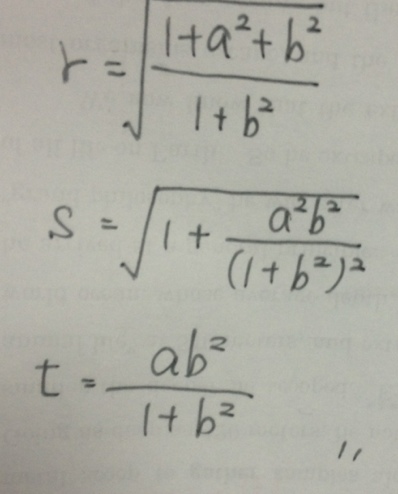 r = √((1+a²+b²)/(1+b²))
s = √(1 + a²b²/(1+b²)²)
t = ab²/(1+b²)
〃